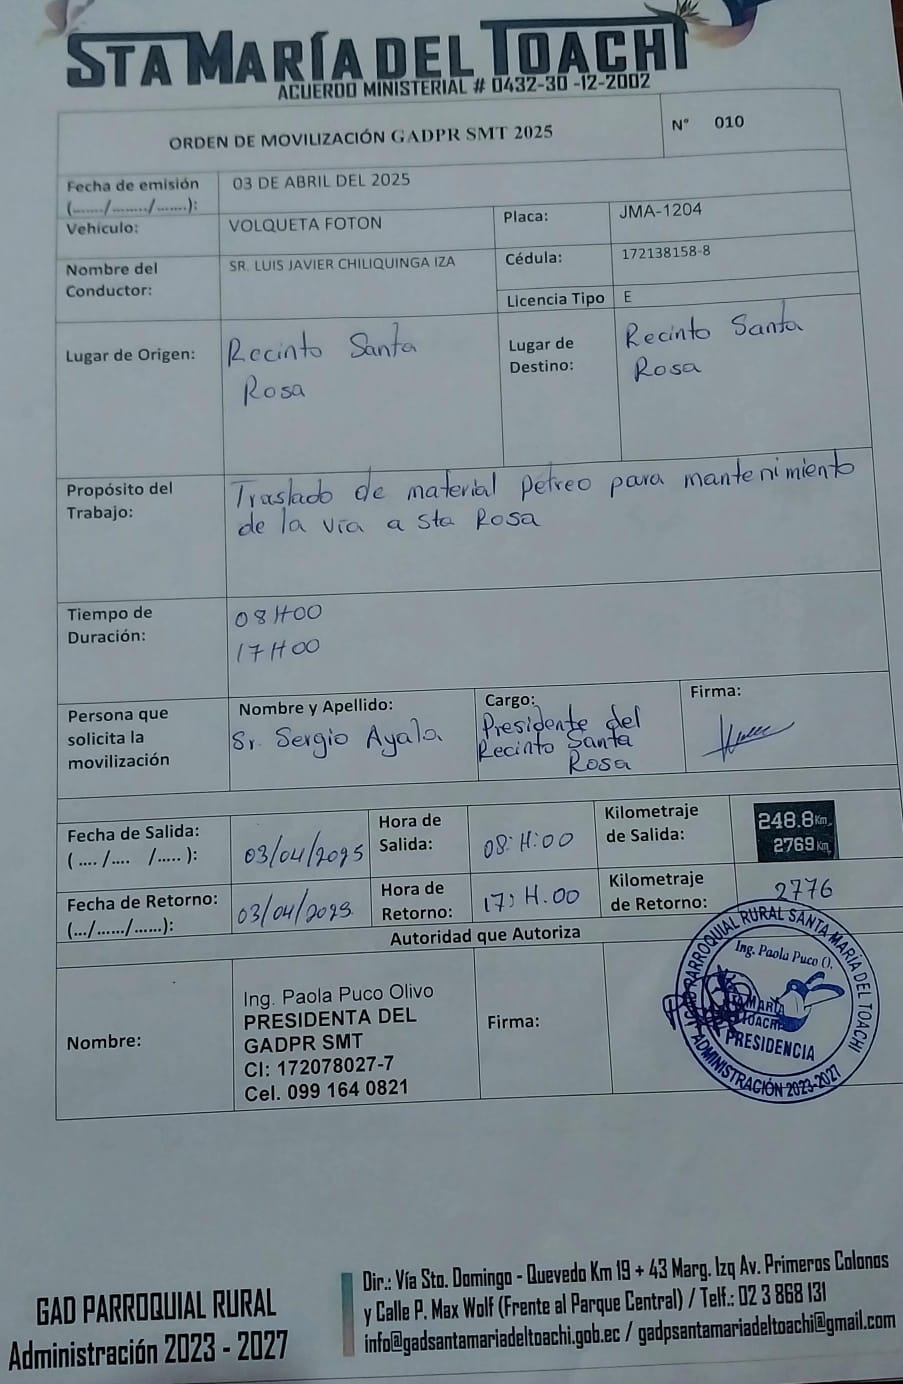 STA MARÍA DEL TOACHI
ACUERDO MINISTERIAL # 0432-30 -12-2002
ORDEN DE MOVILIZACIÓN GADPR SMT 2025
N° 010
Fecha de emisión
(......./......../.......):
03 DE ABRIL DEL 2025
Vehículo:
VOLQUETA FOTON
Placa:
JMA-1204
Nombre del
Conductor:
SR. LUIS JAVIER CHILIQUINGA IZA
Cédula:
172138158-8
Licencia Tipo
E
Lugar de Origen:
Recinto Santa
Rosa
Lugar de
Destino:
Recinto Santa
Rosa
Propósito del
Trabajo:
Traslado de material pétreo para mantenimiento
de la vía a sta Rosa
Tiempo de
Duración:
08H00
17H00
Persona que
solicita la
movilización
Nombre y Apellido:
Sr. Sergio Ayala
Cargo:
Presidente del
Recinto Santa
Rosa
Firma:
Fecha de Salida:
( .... /.... /..... ):
03/04/2025
Hora de
Salida:
08:H:00
Kilometraje
de Salida:
248.8 Km
2769 Km
Fecha de Retorno:
(.../....../......):
03/04/2025
Hora de
Retorno:
17:H.00
Kilometraje
de Retorno:
2776
Autoridad que Autoriza
Nombre:
Ing. Paola Puco Olivo
PRESIDENTA DEL
GADPR SMT
CI: 172078027-7
Cel. 099 164 0821
Firma:
GAD PARROQUIAL RURAL SANTA MARÍA DEL TOACHI
Ing. Paola Puco O.
STA MARÍA
TOACHI
PRESIDENCIA
ADMINISTRACIÓN 2023-2027
GAD PARROQUIAL RURAL
Administración 2023 - 2027
Dir.: Vía Sto. Domingo - Quevedo Km 19 + 43 Marg. Izq Av. Primeros Colonos
y Calle P. Max Wolf (Frente al Parque Central) / Telf.: 02 3 868 131
info@gadsantamariadeltoachi.gob.ec / gadpsantamariadeltoachi@gmail.com